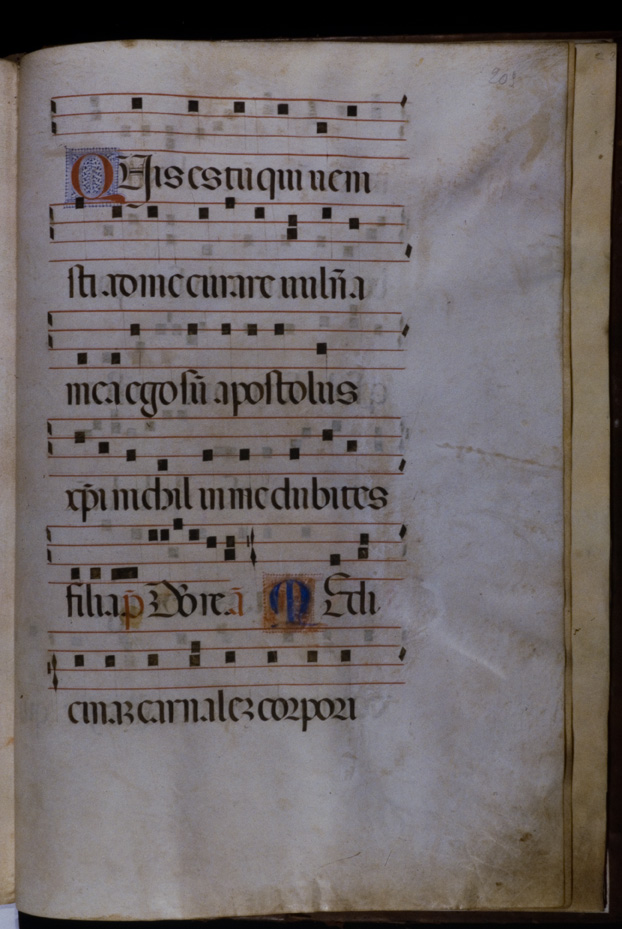 QUis es tu qui ueni
sti ad me curare uuln̄a
mea ego sū apostolus
xp̄i nichil in me dubites
filia p̄ Dore.ā MEdi
cinaz carnalez corpori